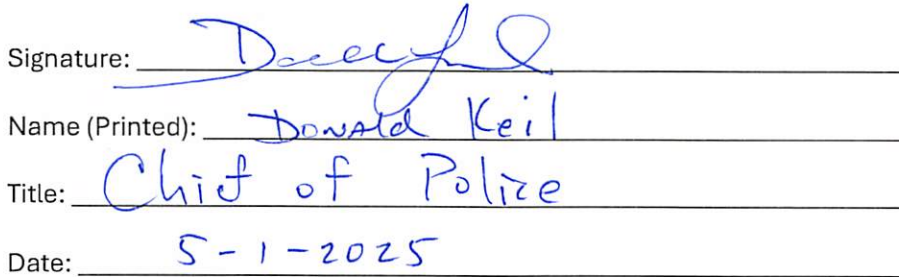 Signature:
Name (Printed): Donald Keil
Title: Chief of Police
Date: 5-1-2025